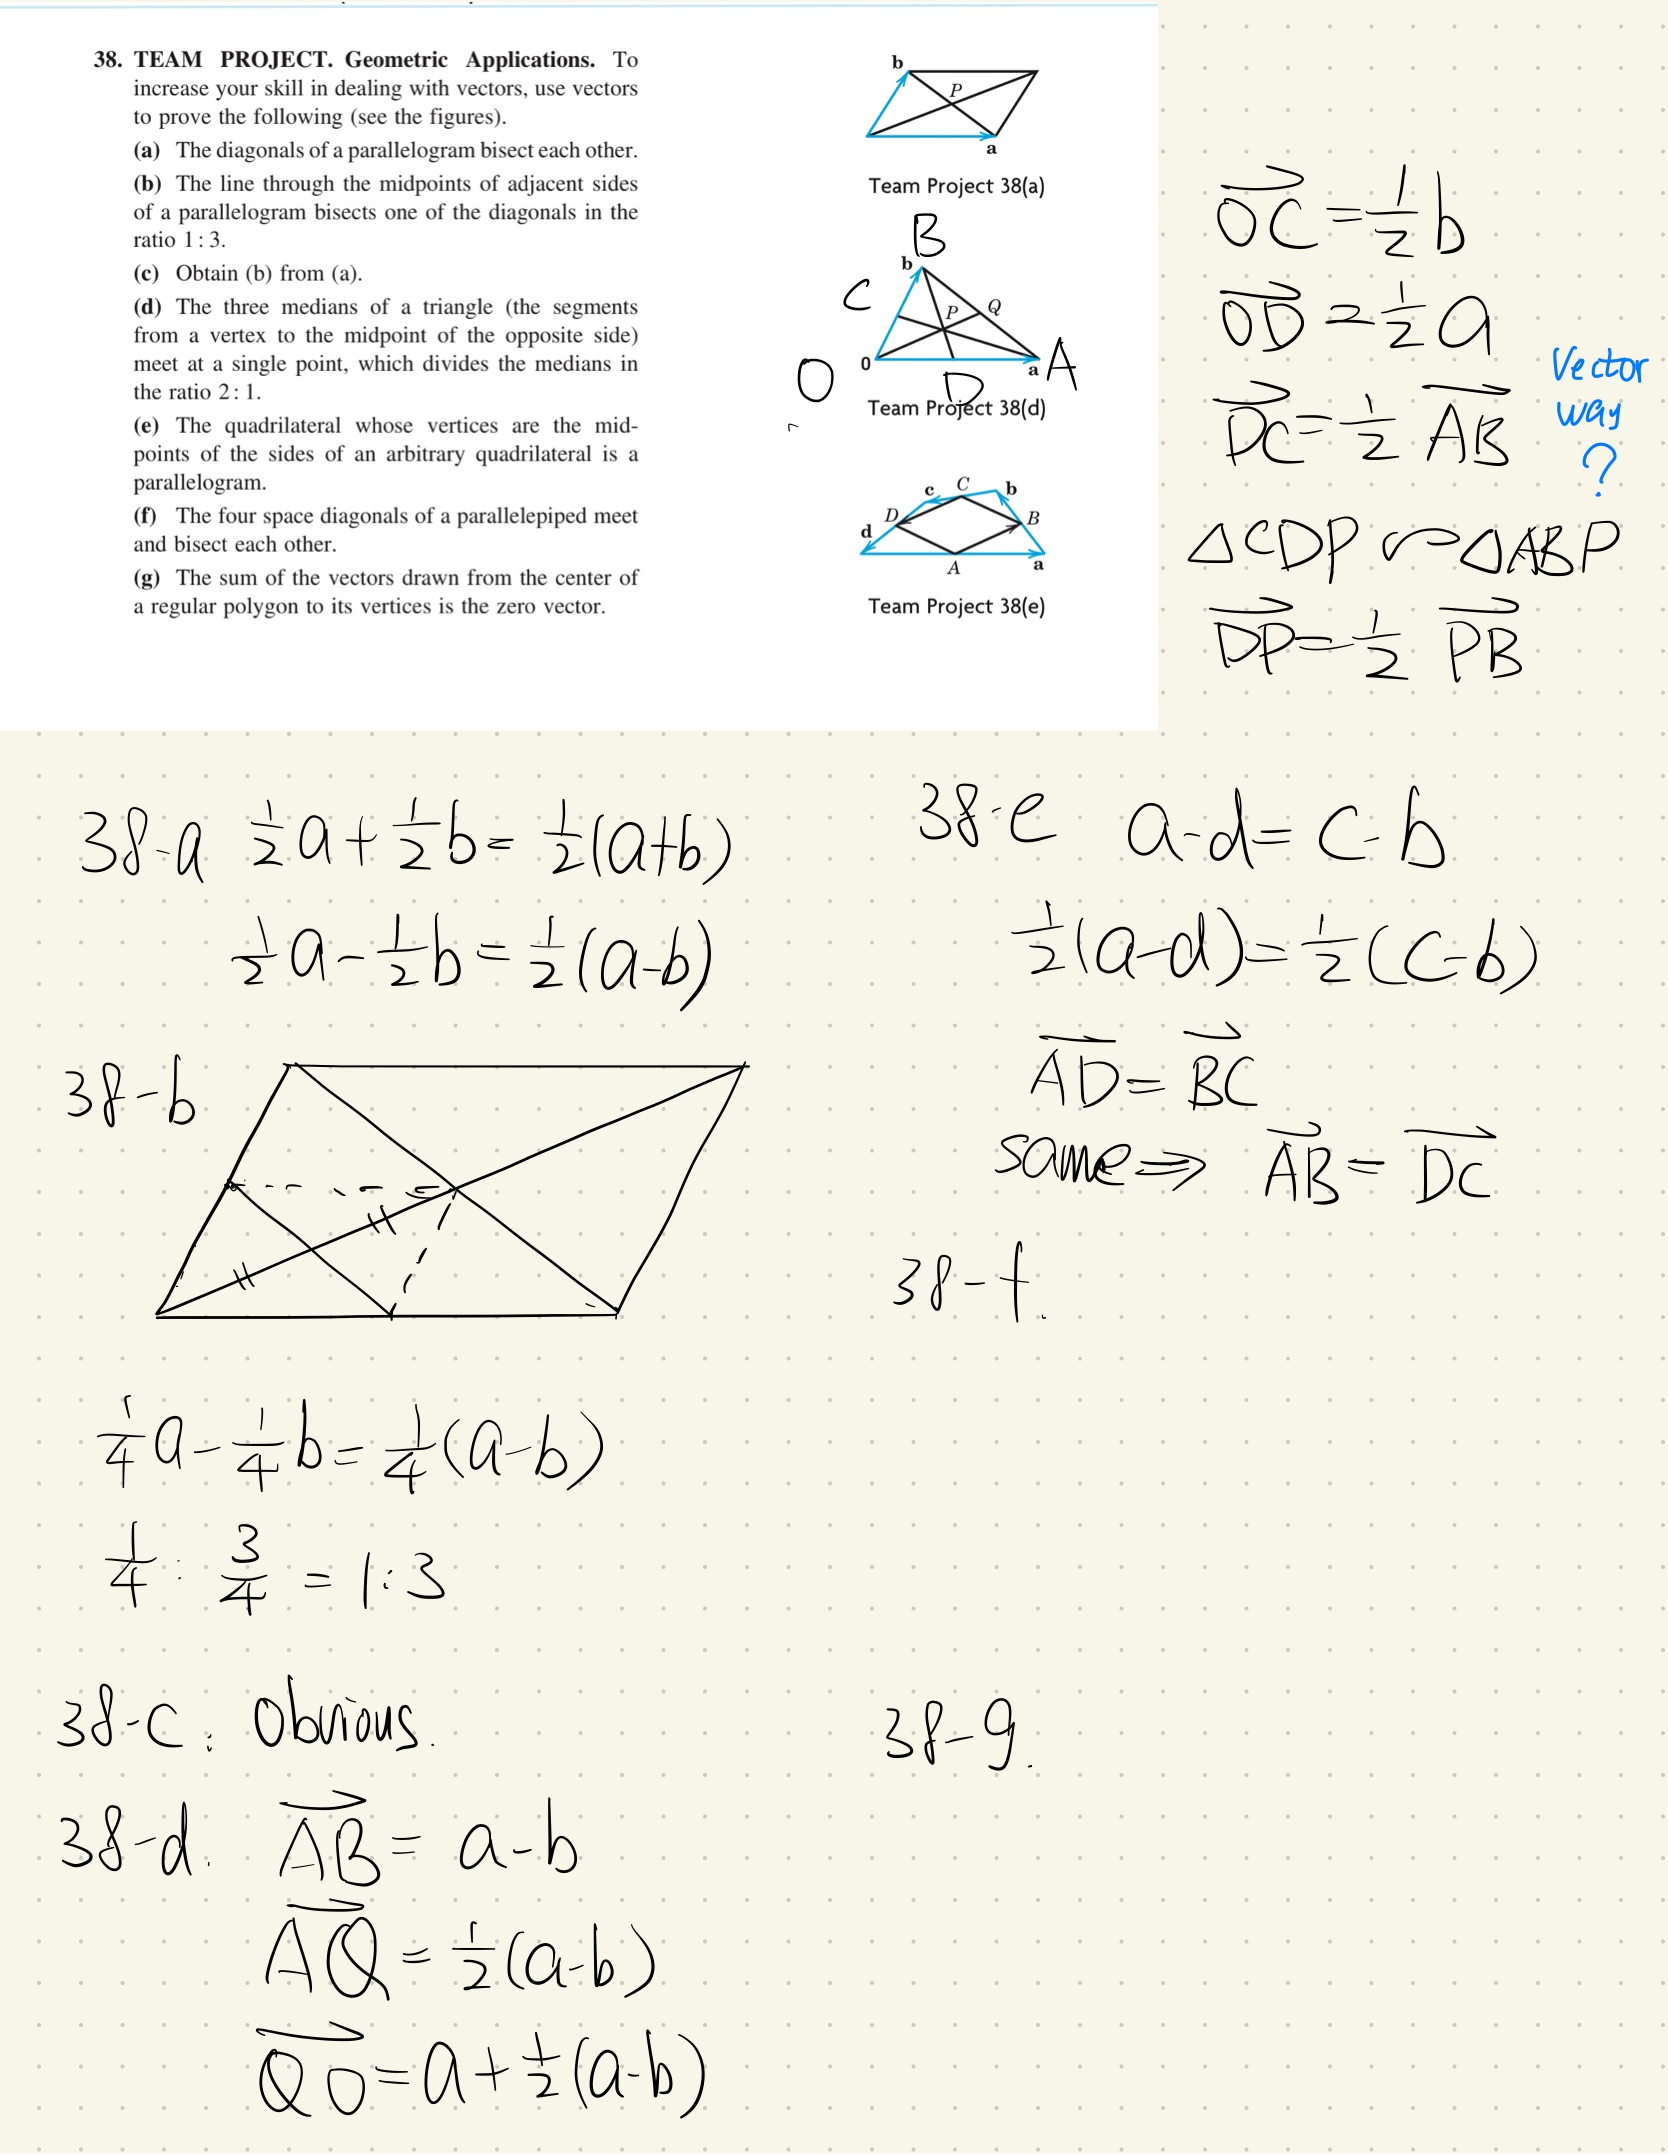 38. TEAM PROJECT. Geometric Applications. To
increase your skill in dealing with vectors, use vectors
to prove the following (see the figures).
(a) The diagonals of a parallelogram bisect each other.
(b) The line through the midpoints of adjacent sides
of a parallelogram bisects one of the diagonals in the
ratio 1 : 3.
(c) Obtain (b) from (a).
(d) The three medians of a triangle (the segments
from a vertex to the midpoint of the opposite side)
meet at a single point, which divides the medians in
the ratio 2 : 1.
(e) The quadrilateral whose vertices are the mid-
points of the sides of an arbitrary quadrilateral is a
parallelogram.
(f) The four space diagonals of a parallelepiped meet
and bisect each other.
(g) The sum of the vectors drawn from the center of
a regular polygon to its vertices is the zero vector.
b
P
a
Team Project 38(a)
B
b
C
P
Q
O
0
D
a
A
Team Project 38(d)
c
C
b
D
B
d
A
a
Team Project 38(e)
→OC = 1/2 b
→OD = 1/2 a
→DC = 1/2 →AB
Vector
way
?
△CDP ∽ △ABP
→DP = 1/2 →PB
38-a 1/2 a + 1/2 b = 1/2 (a+b)
1/2 a - 1/2 b = 1/2 (a-b)
38-b
1/4 a - 1/4 b = 1/4 (a-b)
1/4 : 3/4 = 1:3
38-c : Obvious.
38-d. →AB = a-b
→AQ = 1/2 (a-b)
→QO = a + 1/2 (a-b)
38-e a-d = c-b
1/2 (a-d) = 1/2 (c-b)
→AD = →BC
same ⇒ →AB = →DC
38-f.
38-g.